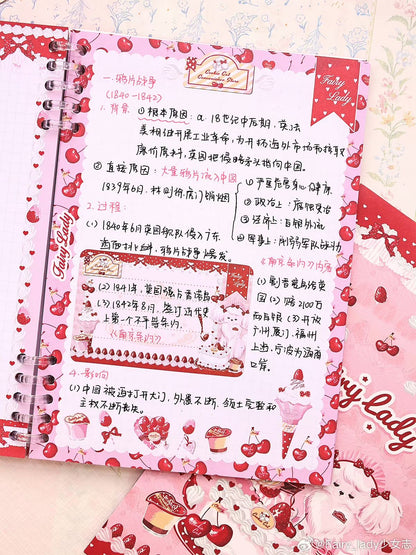 Cookie Cat
Fairy
Lady
一.鸦片战争
(1840-1842)
1.背景 ①根本原因:a.18世纪中后期,英法
美相继开展工业革命,为开拓海外市场和抢夺
廉价原料,英国把侵略矛头指向中国。
②直接原因:大量鸦片流入中国
1839年6月,林则徐虎门销烟
①严重危害身心健康
②政治上:腐败
③经济上:白银外流
④军事上:削弱军队战斗力
2.过程:
(1)1840年6月英国舰队侵入广东
海面挑衅,鸦片战争爆发。
(2)1841年,英国强占香港岛
(3)1842年8月,签订近代史
上第一个不平等条约.
《南京条约》
《南京条约》内容
(1)割香港岛给英
国(2)赔2100万
西班银(3)开放
广州,厦门,福州
上海,宁波为通商
口岸。
4.影响
(1)中国被迫打开大门,外患不断,领土完整和
主权不断丧失。
Fairy Lady
Fairy Lady
lady少女志